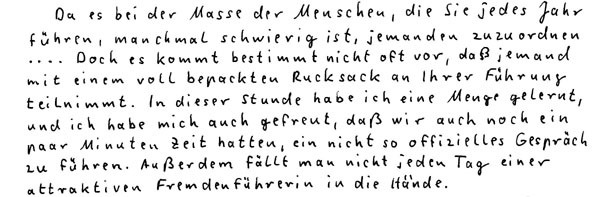 Da es bei der Masse der Menschen, die Sie jedes Jahr
führen, manchmal schwierig ist, jemanden zuzuordnen
.... Doch es kommt bestimmt nicht oft vor, daß jemand
mit einem voll bepackten Rucksack an Ihrer Führung
teilnimmt. In dieser Stunde habe ich eine Menge gelernt,
und ich habe mich auch gefreut, daß wir auch noch ein
paar Minuten Zeit hatten, ein nicht so offizielles Gespräch
zu führen. Außerdem fällt man nicht jeden Tag einer
attraktiven Fremdenführerin in die Hände.